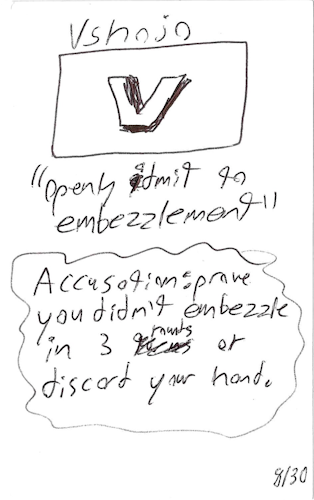 Vshojo
V
"Openly admit to
embezzlement"
Accusation: prove
you didn't embezzle
in 3 rounds or
discard your hand.
8/30